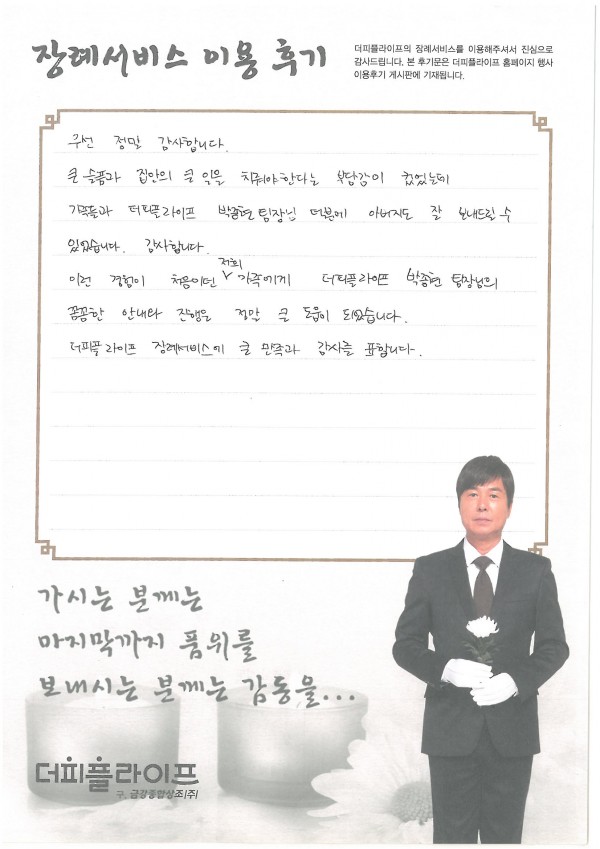 장례서비스 이용 후기
더피플라이프의 장례서비스를 이용해주셔서 진심으로
감사드립니다. 본 후기문은 더피플라이프 홈페이지 행사
이용후기 게시판에 기재됩니다.
우선 정말 감사합니다.
큰 슬픔과 집안의 큰 일을 치뤄야한다는 부담감이 컸었는데
가족들과 더피플라이프 박종현 팀장님 덕분에 아버지도 잘 보내드릴 수
있었습니다. 감사합니다.
이런 경험이 처음이던 저희 가족에게 더피플라이프 박종현 팀장님의
꼼꼼한 안내와 진행은 정말 큰 도움이 되었습니다.
더피플라이프 장례서비스에 큰 만족과 감사를 표합니다.
가시는 분께는
마지막까지 품위를
보내시는 분께는 감동을...
더피플라이프
구. 금강종합상조(주)